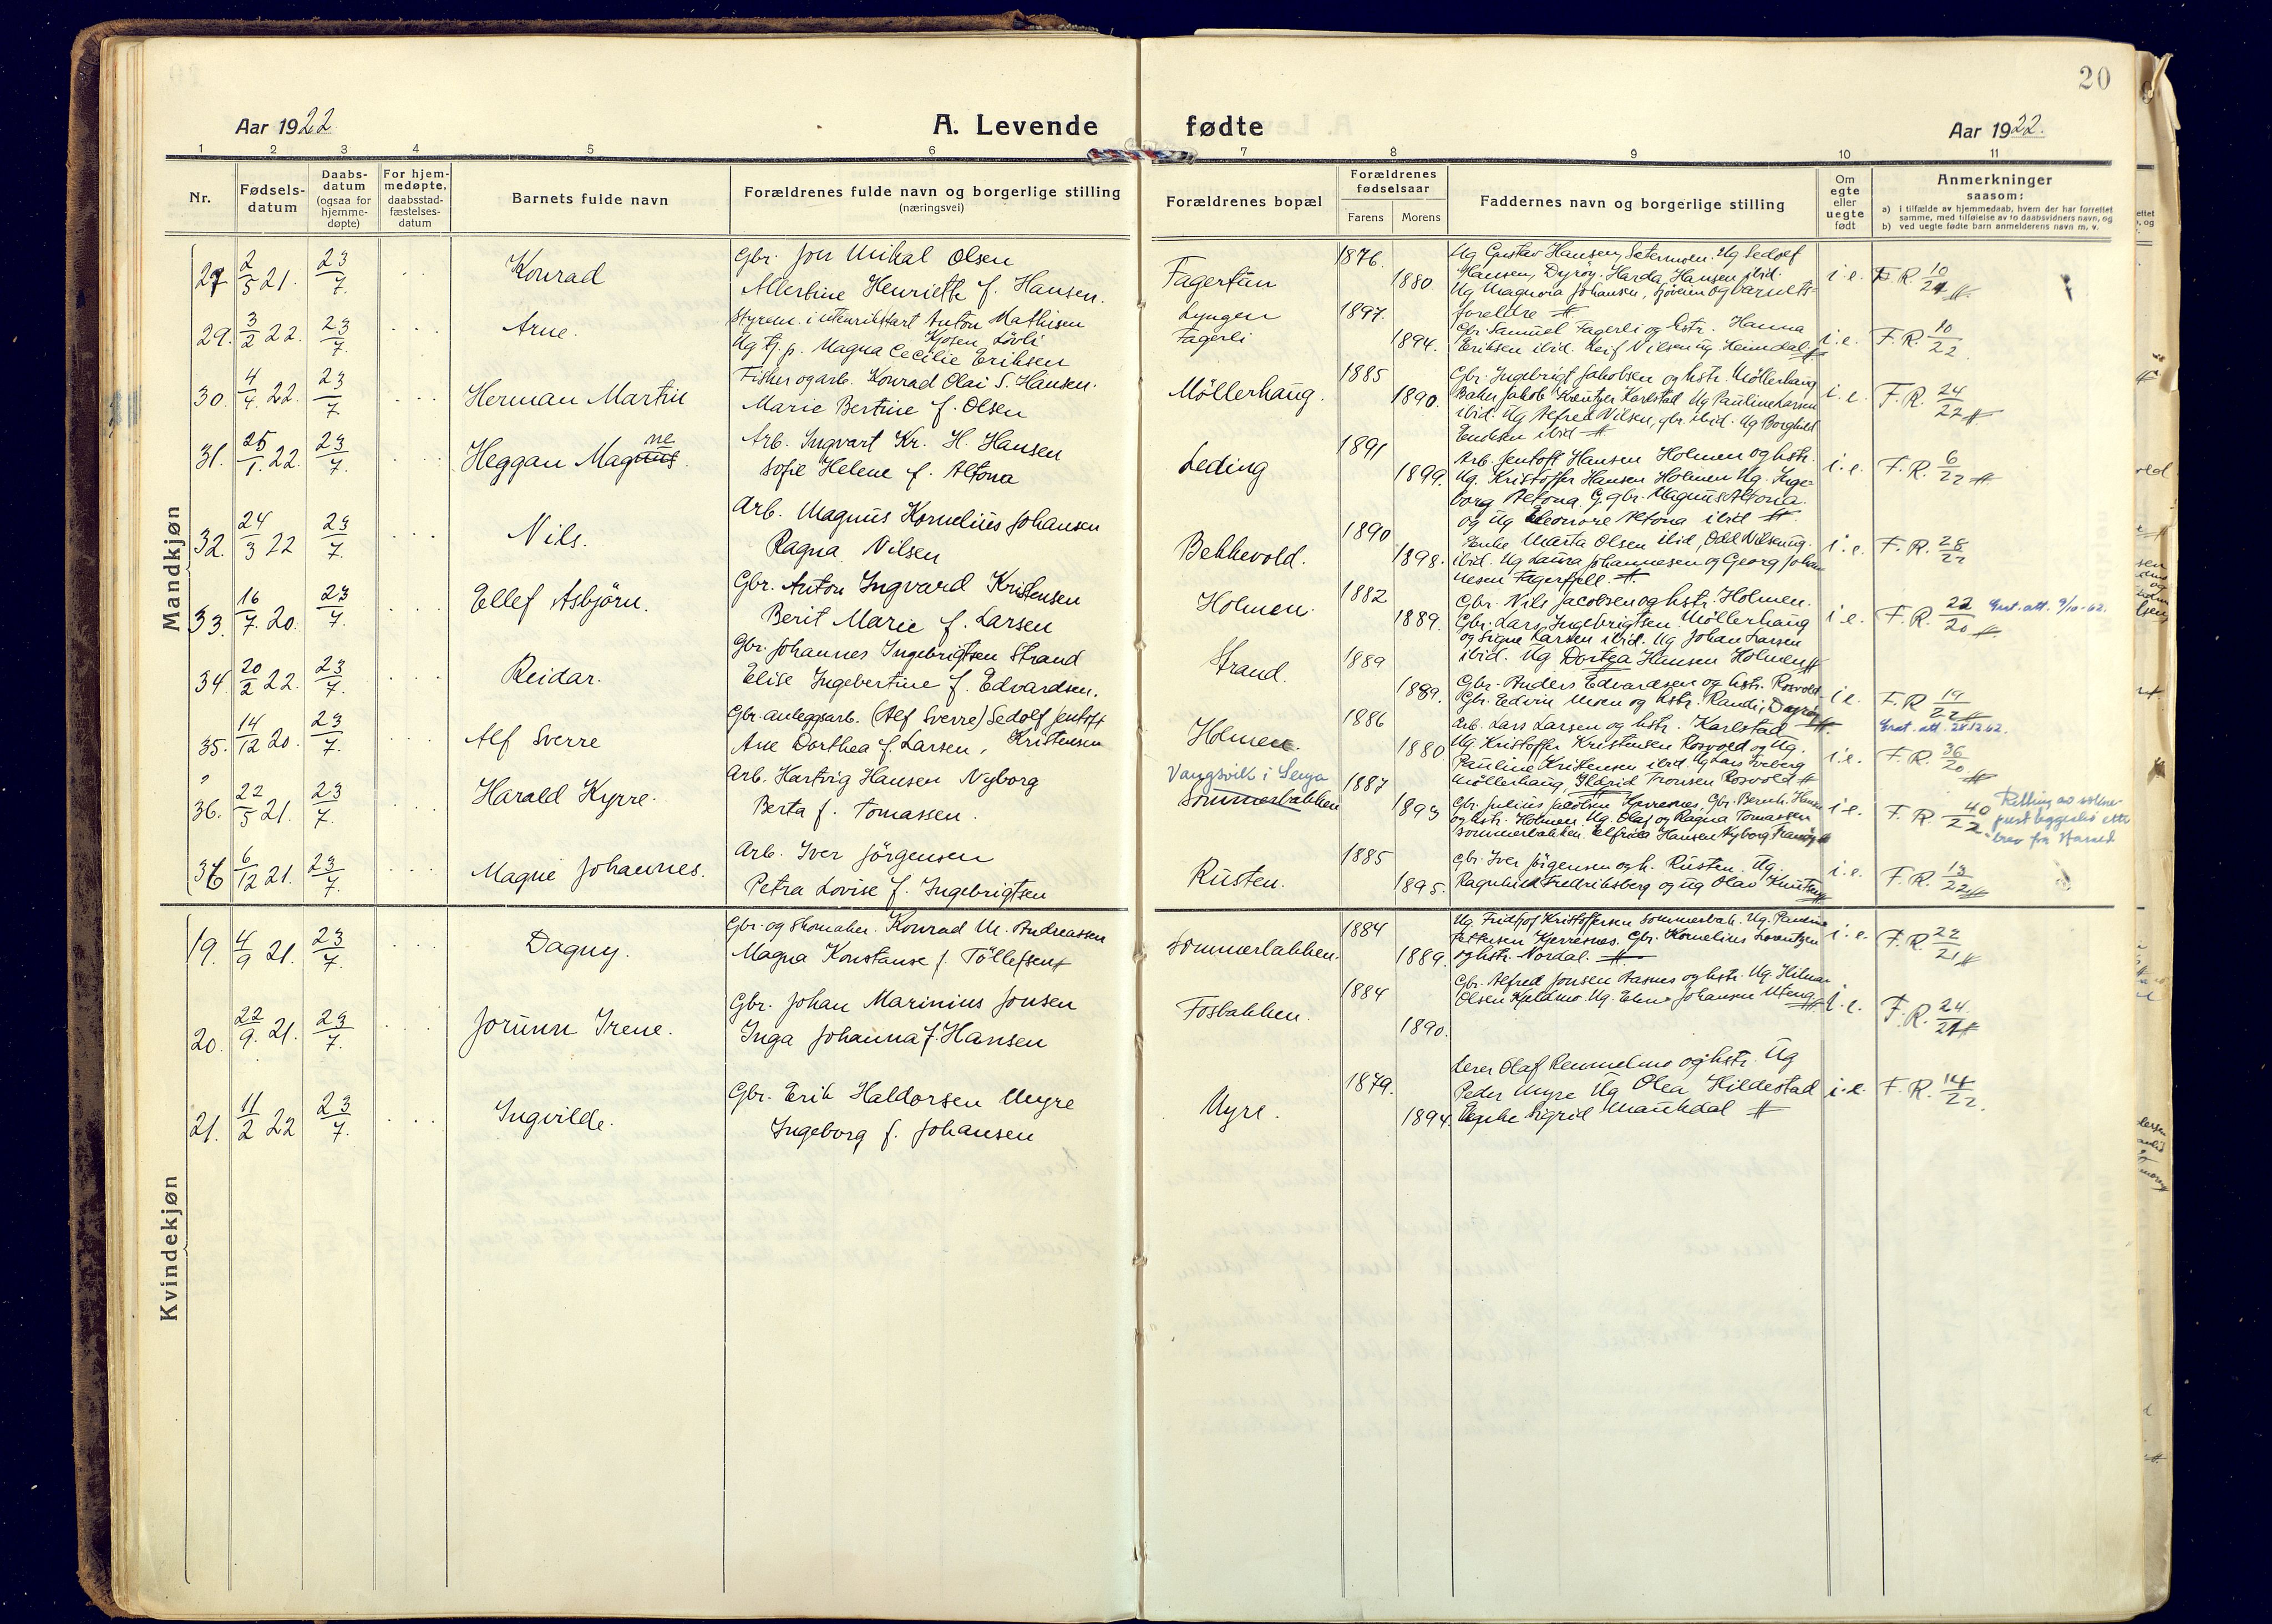 20
Aar 1922.
A. Levende
fødte
Aar 1922.
1 2 3 4 5 6 7 8 9 10 11
Nr.
Fødsels-
datum
Daabs-
datum
(ogsaa for
hjemme-
døpte)
For hjem-
medøpte,
daabsstad-
fæstelses-
datum
Barnets fulde navn
Forældrenes fulde navn og borgerlige stilling
(næringsvei)
Forældrenes bopæl
Forældrenes
fødselsaar
Farens
Morens
Faddernes navn og borgerlige stilling
Om
egte
eller
uegte
født
Anmerkninger
saasom:
a) i tilfælde av hjemmedaab, hvem der har forrettet
samme, med tilføielse av to daabsvidners navn, og
b) ved uegte fødte barn anmelderens navn m. v.
Mandkjøn
2/5 21. 23/7. Konrad
Gbr. Jon Mikal Olsen
Albertine Henriette f. Hansen.
Fagertun
1876.
1880.
Ug Gustav Hansen, Setermoen. Ug Sedolf
Hansen, Dyrøy. Harda Hansen ibid.
Ug Magnora Johansen, Sjøveien og barnets
foreldre
i. e. F. R. 10/21
29. 3/2 22. 23/7. Arne.
Styrem. i utenriksfart Anton Mathisen
Kjosen Lövli
Ug tj. p. Magna Cecilie Eriksen
Lyngen
Fagerli
1897.
1894.
Gbr. Samuel Fagerli og hstr. Hanna
Eriksen ibid. Leif Nilsen ug Heimdal
i. e. F. R. 10/22.
30. 4/4. 22. 23/7 Herman Martin
Fisker og arb. Konrad Olai S. Hansen.
Marie Bertine f. Olsen
Möllerhaug.
1885
1890.
Gbr. Ingebrigt Jakobsen og hstr. Möllerhaug
Baker Jakob Kreutzer Karlstad Ug Pauline Larsen
ibid. Ug Alfred Nilsen, gbr. ibid. Ug Borghild
Eriksen ibid
i. e. F. R. 24/22
31. 25/1. 22. 23/7. Heggan Magnus ne
Arb. Ingvart Kr. H. Hansen
Sofie Helene f. Altona
Leding
1891
1899.
Arb. Jentoft Hansen Holmen og hstr.
Ug. Kristoffer Hansen Holmen Ug. Inge-
borg Altona. G. gbr. Magnus Altona
og ug Eleonore Altona ibid
i. e. F. R. 6/22
32. 24/3 22 23/7. Nils.
Arb. Magnus Kornelius Johansen
Ragna Nilsen
Bekkevold.
1890
1898.
Enke Marta Olsen ibid, Odd Nilsen ug.
ibid. Ug Laura Johannesen og Georg Johan-
nesen Fagerfjell.
i. e. F. R. 28/22
33. 16/7. 20. 23/7. Ellef Asbjörn.
Gbr. Anton Ingvard Kristensen
Berit Marie f. Larsen
Holmen.
1882
1889.
Gbr. Nils Jacobsen og hstr. Holmen.
Gbr. Lars Ingebrigtsen Möllerhaug
og Signe Larsen ibid. Ug Johan Larsen
ibid. Ug Dortea Hansen Holmen
i. e. F. R. 22/20 9/10-62.
34. 20/2 22. 23/7. Reidar.
Gbr. Johannes Ingebrigtsen Strand
Elise Ingebertine f. Edvardsen.
Strand.
1889
1889.
Gbr. Anders Edvardsen og hstr. Rosvold
Gbr. Edvin Moen og hstr. Randi, Dyrøy
i. e. F. R 19/22
35. 14/12 20. 23/7. Alf Sverre
Gbr. anleggsarb. (Alf Sverre) Sedolf Jentoft
Kristensen
Ane Dorthea f. Larsen.
Holmen.
1886
1880.
Arb. Lars Larsen og hstr. Karlstad
Ug. Kristoffer Kristensen Rosvold og Ug.
Pauline Kristensen ibid. Ug Lars Iveberg
Möllerhaug, Ildrid Tronsen Rosvold
i. e. F. R. 36/20
36. 22/5 21. 23/7. Harald Kyrre.
Arb. Hartvig Hansen Nyborg
Berta f. Tomassen.
Vangsvik i Senja
Sommerbakken
1887
1893
Gbr. Julius Jacobsen Kjerresnes, Gbr. Bernh. Hansen
og hstr. Holmen. Ug. Olaf og Ragna Tomassen
Sommerbakken. Elfrida Hansen Nyborg Tranöy
i. e. F. R. 40/22
36 6/12 21. 23/7. Magne Johannes.
Arb. Iver Jörgensen
Petra Lovise f. Ingebrigtsen
Rusten.
1885
1895.
Gbr. Iver Jörgensen og h. Rusten. Ug.
Ragnhild Fredriksberg og ug Olav Knutsen
i. e. F. R. 13/22
Kvindekjøn
19. 4/9 21. 23/7. Dagny.
Gbr. og Skomaker. Konrad M. Andreassen
Magna Konstanse f. Töllefsen
Sommerbakken.
1884
1889.
Ug. Fridtjof Kristoffersen Sommerbak. Ug. Pauline
Pettersen Kjerresnes. Gbr. Kornelius Lorentzen
og hstr. Nordal.
i. e. F. R. 22/21
20. 22/9. 21. 23/7. Jorunn Irene.
Gbr. Johan Marinius Jonsen
Inga Johanna f. Hansen
Fosbakken.
1884
1890.
Gbr. Alfred Jonsen Aasnes og hstr. Ug. Hilmar
Olsen Kjeldmo. Ug. Elena Johansen Uteng
i. e. F. R. 24/21
21. 11/2 22 23/7. Ingvilde.
Gbr. Erik Haldorsen Myre
Ingeborg f. Johansen
Myre.
1879.
1894.
Lærer Olaf Remmelmo og hstr. Ug
Peder Myre Ug Olea Hildestad
Enke Sigrid Maukdal
i. e. F. R. 14/22.